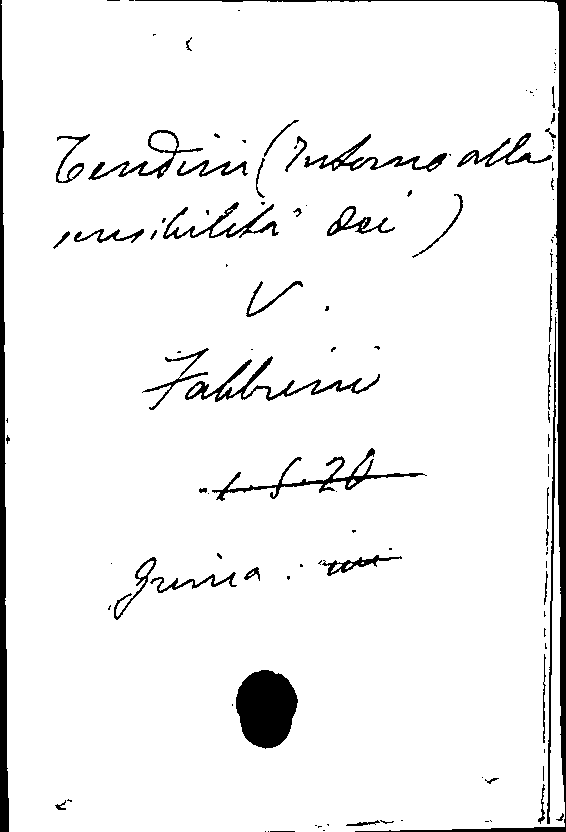 Tendini (Intorno alla
sensibilità dei)
V.
Fabbrini
1. 5. 20